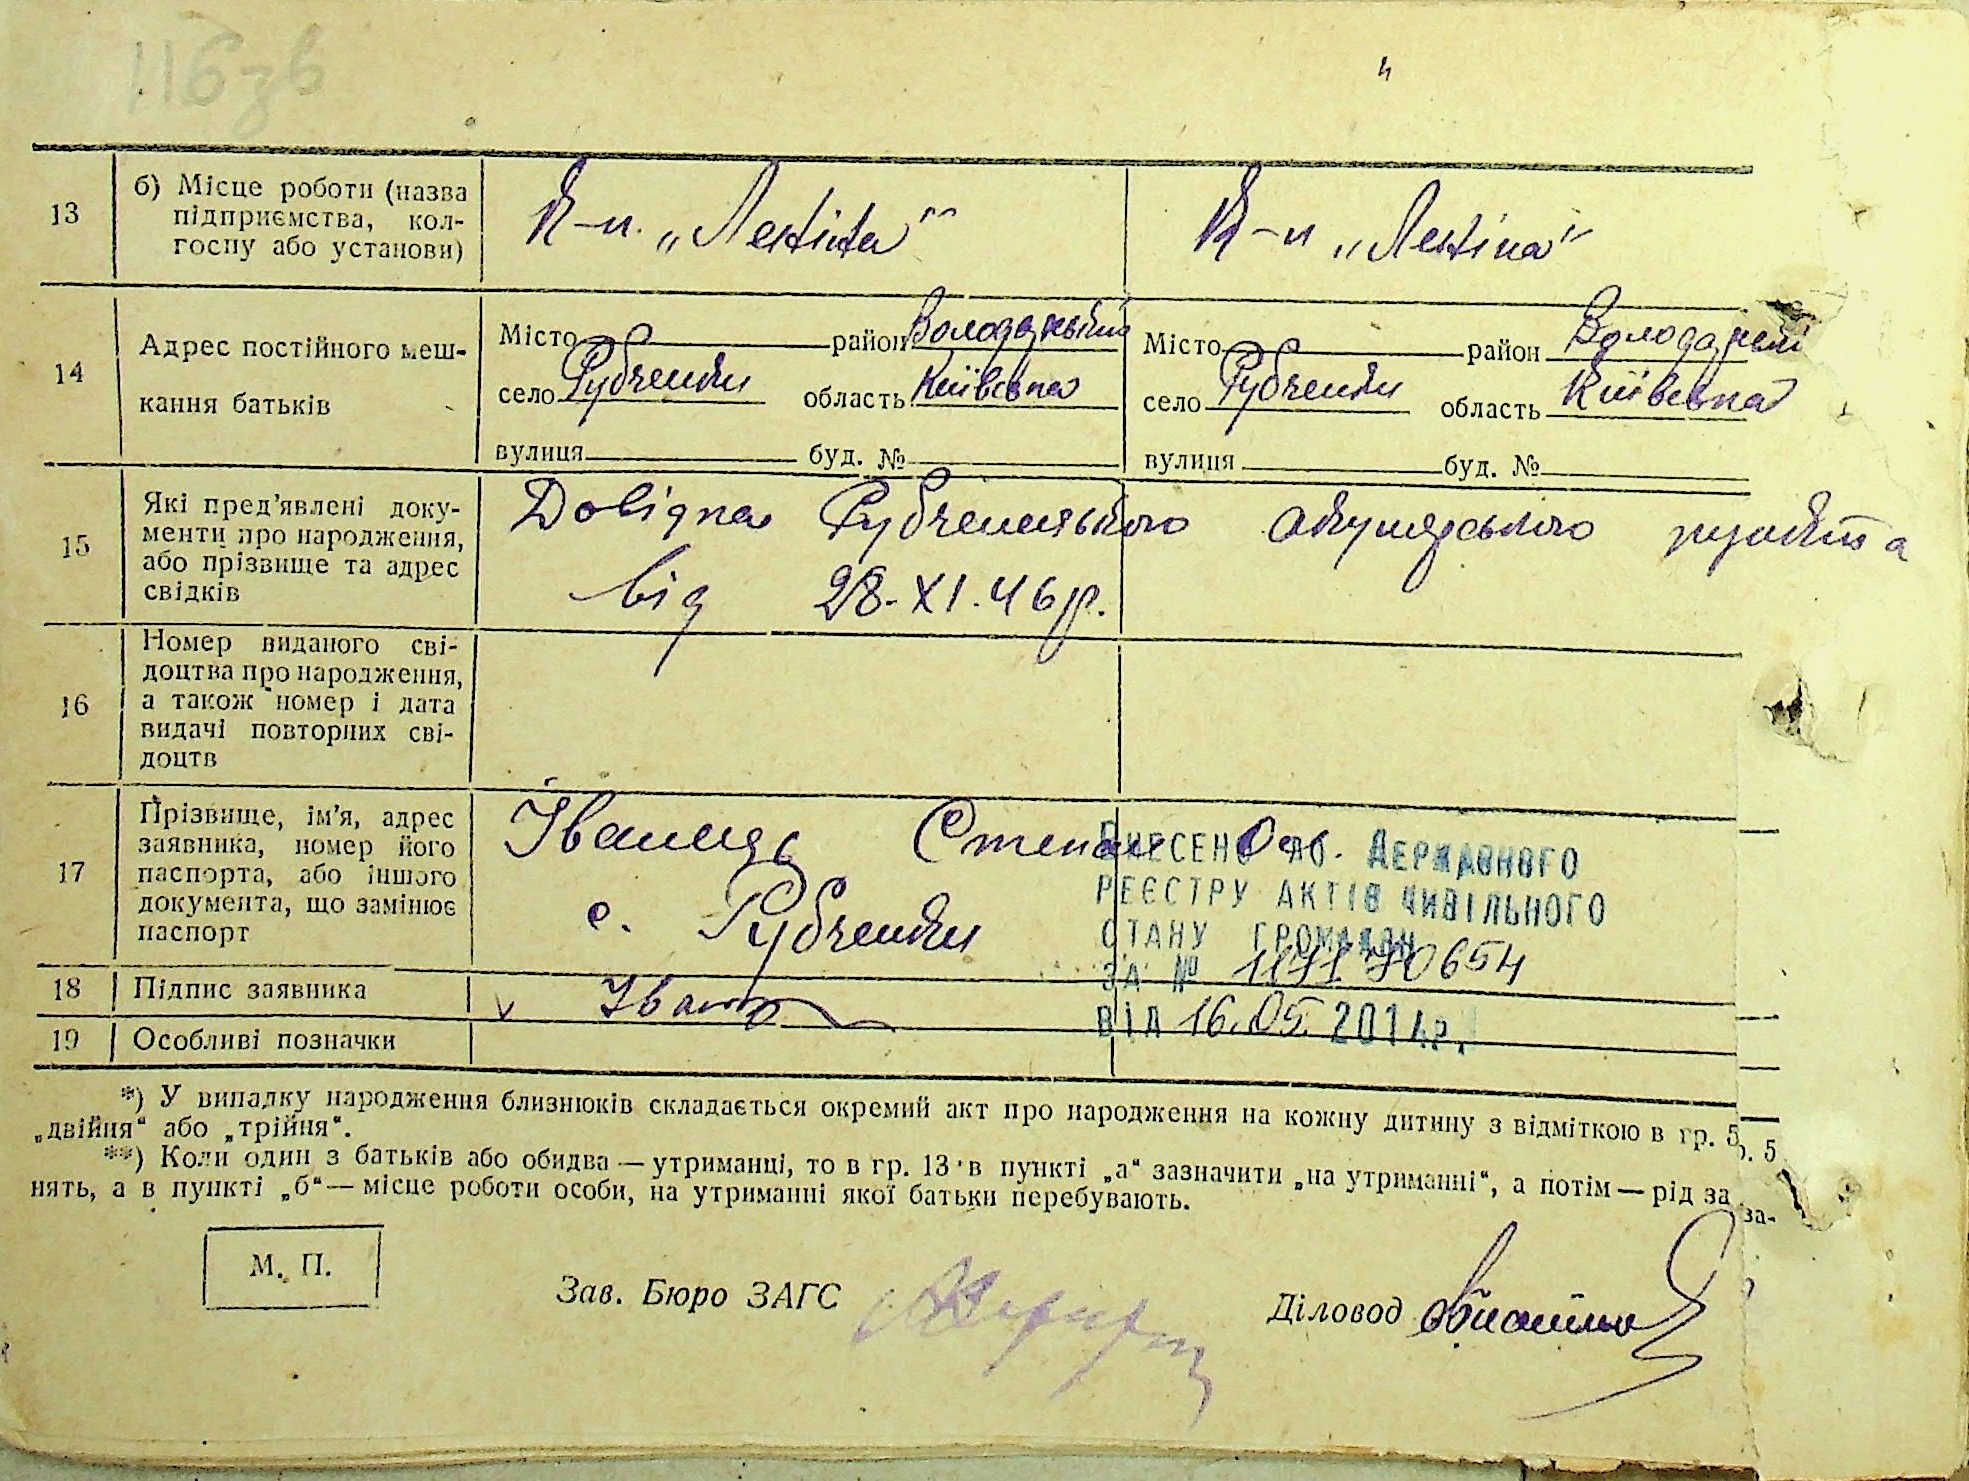 116 зв
4
13
б) Місце роботи (назва
підприємства, кол-
госпу або установи)
К-п. „Леніна"
К-п „Леніна"
14
Адрес постійного меш-
кання батьків
Місто район Володарський
село Рубченки область Київська
вулиця буд. №
Місто район Володарський
село Рубченки область Київська
вулиця буд. №
15
Які пред'явлені доку-
менти про народження,
або прізвище та адрес
свідків
Довідка Рубченського акушерського пункта
від 28.XI.46 р.
16
Номер виданого сві-
доцтва про народження,
а також номер і дата
видачі повторних сві-
доцтв
17
Прізвище, ім'я, адрес
заявника, номер його
паспорта, або іншого
документа, що замінює
паспорт
Іванець Степан
с. Рубченки
ВНЕСЕНО ДО ДЕРЖАВНОГО
РЕЄСТРУ АКТІВ ЦИВІЛЬНОГО
СТАНУ ГРОМАДЯН
ЗА №
ВІД 16.05.2014р.
18
Підпис заявника
v
19
Особливі позначки
*) У випадку народження близнюків складається окремий акт про народження на кожну дитину з відміткою в гр. 5
„двійня" або „трійня".
**) Коли один з батьків або обидва — утриманці, то в гр. 13 в пункті „а" зазначити „на утриманні", а потім — рід за
нять, а в пункті „б" — місце роботи особи, на утриманні якої батьки перебувають.
. 5
за-
М. П.
Зав. Бюро ЗАГС
Діловод